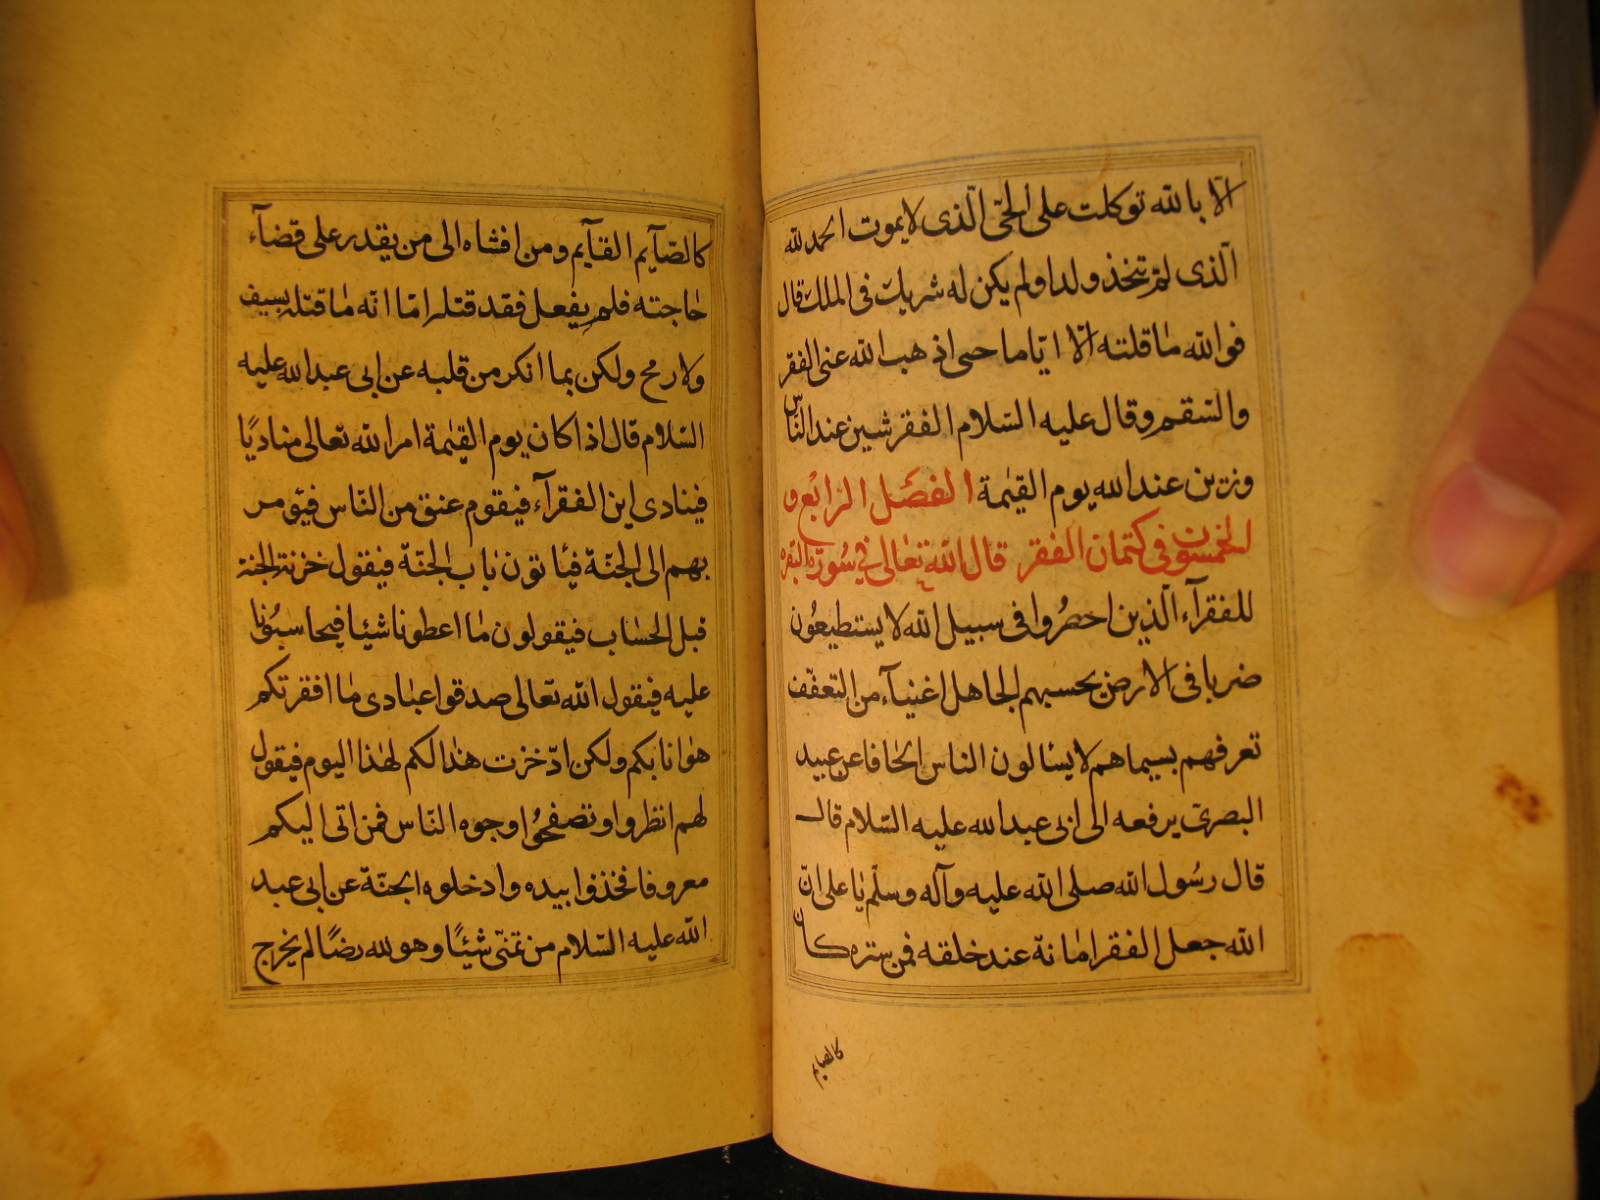 الّا بالله توكلت على الحىّ الّذى لا يموت الحمد لله
الّذى لم يتخذ ولدا ولم يكن له شريك فى الملك قال
فوالله مٰا قلته الّا ايّاما حتى اذهب الله عنى الفقر
والسّقم وقال عليه السّلام الفقر شين عند النّاس
وزين عند الله يوم القيٰمة الفصل الرابع و
الخمسون فى كتمان الفقر قال الله تعٰالى فى سُورة البقره
للفقرآء الّذين احصُروا فى سبيل الله لا يستطيعُون
ضربا فى الارض يحسبهم الجاهل اغنيآء من التعفّف
تعرفهم بسيماهم لا يسٔالون الناس الحٰافا عن عبيد
البصرىّ يرفعه الى ابى عبد الله عليه السّلام قال
قال رسُول الله صلى الله عليه وآله وسلّم يٰا على انّ
الله جعل الفقر امٰانة عند خلقه فمن ستره كان
كالصايم
كالصّآيم القآيم ومن افشاه الى من يقدر على قضآء
حٰاجته فلم يفعل فقد قتله امّا انّه مٰا قتله بسيف
ولا رمح ولكن بما انكر من قلبه عن ابى عبد الله عليه
السّلام قال اذا كان يوم القيٰمة امر الله تعالى مناديًا
فينادى اين الفقرآء فيقوم عنق من النّاس فيؤمر
بهم الى الجنّة فئاتون بٰاب الجنّة فيقول خزنة الجنة
قبل الحسٰاب فيقولون مٰا اعطونا شيئا فيحاسبُونا
عليه فيقول الله تعالى صدقوا عبٰادى مٰا افقرتكم
هوٰانا بكم ولكن ادّخرت هٰذا لكم لهٰذا اليوم فيقول
لهم انظروا وتصفحُوا وجوه النّاس فمن اتى اليكم
معروفا فخذوا بيده وادخلوه الجنّة عن ابى عبد
الله عليه السّلام من تمنّى شيئًا وهو لله رضًا لم يخرج